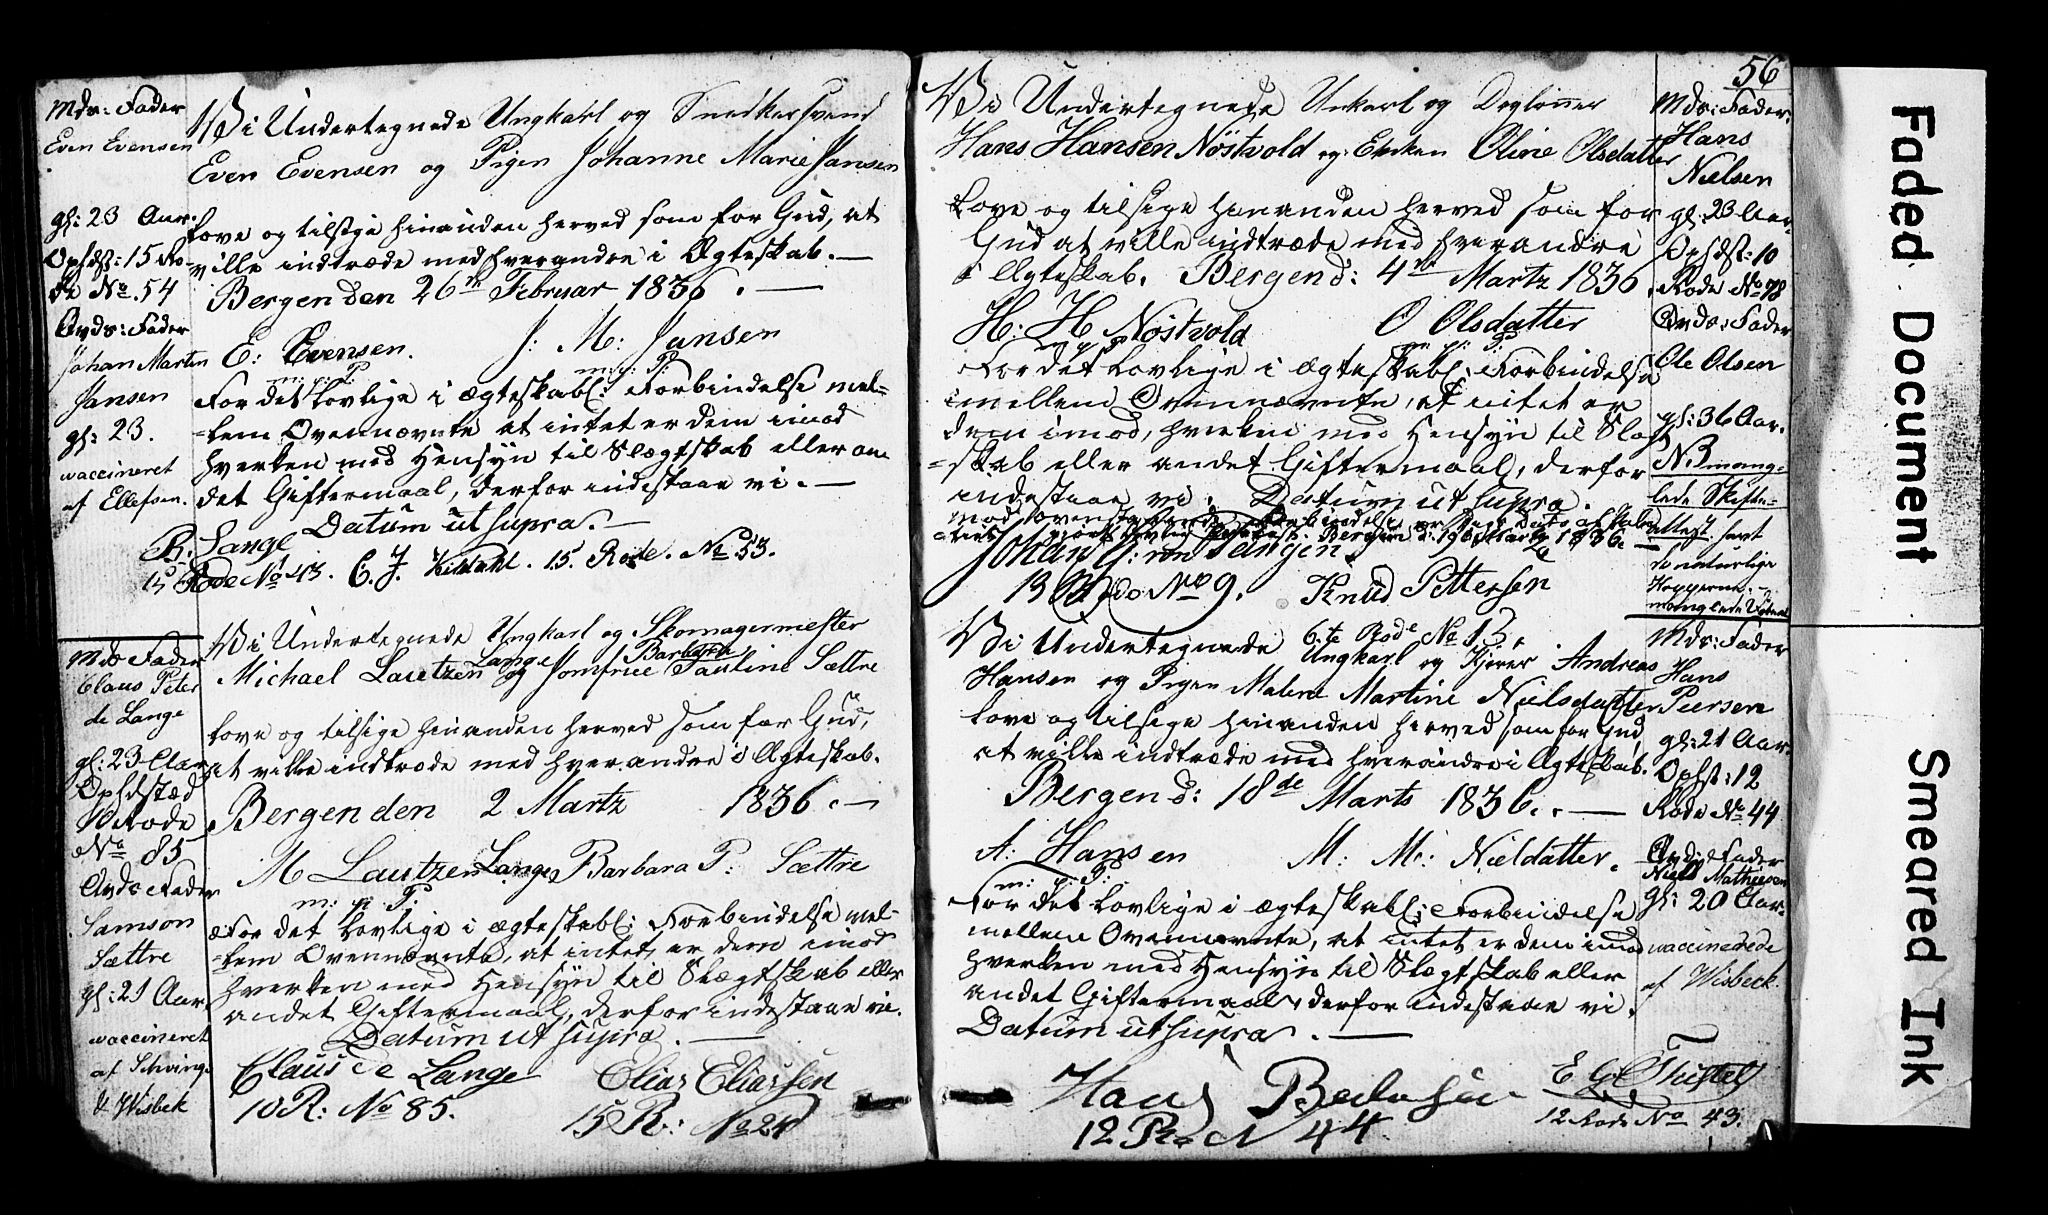 Mds: Fader
Even Evensen
gl: 23 Aar.
Opfdst: 15 Ro-
de No. 54
Brds: Fader
Johan Martin
Jansen
gl: 23.
vaccineret
af Ellefsen.
Vi Undertegnede Ungkarl og Snedkersvend
Even Evensen og Pigen Johanne Marie Jansen
love og tilsige hinanden herved som for Gud, at
ville indtræde med hverandre i Ægteskab. —
Bergen den 26de Februar 1836. —
E: Evensen. J: M: Jansen
m: p: P: m: p: P:
For det Lovlige i ægteskabl: Forbindelse mel-
-lem Ovennævnte at intet er dem imod
hverken med Hensyn til Slægtskab eller an-
det Giftermaal, derfor indestaae vi. —
Datum ut supra. —
R. Lange
15 Rode No 43. C. J. Kildahl. 15. Rode. No 53.
Mds Fader
Claus Peter
de Lange
gl: 23 Aar
Opfdstæd
10 Rode
No 85
Brds Fader
Samson
Sættre
gl: 21 Aar.
vaccineret
af Schving
& Wisbek
Vi Undertegnede Ungkarl og Skomagermester
Michael Lautzen Lange og Jomfrue Barbara Pauline Sættre
love og tilsige hinanden herved som for Gud,
at ville indtræde med hverandre i Ægteskab.
Bergen den 2 Martz 1836. —
M Lautzen Lange Barbara P: Sættre
m: p: P:
For det Lovlige i ægteskabl: Forbindelse mel-
-lem Ovennævnte, at intet er dem imod
hverken med Hensyn til Slægtskab eller
andet Giftermaal, derfor indestaae vi.
Datum ut supra. —
Claus de Lange Elias Eliassen
10 R: No 85. 15 R: No 24
56
Vi Undertegnede Unkarl og Daglønner
Hans Hansen Nøstvold og Enken Oline Olsdatter
love og tilsige hinanden herved som for
Gud at ville indtræde med hverandre
i Ægteskab. Bergen d: 4de Martz 1836.
H: H Nøstvold O Olsdatter
m p P m: p: P:
For det Lovlige i ægteskabl: Forbindelse
imellem Ovennævnte, at intet er
dem imod, hverken med Hensyn til Slægt
-skab eller andet Giftermaal, derfor
indestaae vi. Datum ut supra.
Mod ovenstaaende Forbindelse er
Bergen d: 19 Martz 1836.
Johan J: von Tangen
13 Rode No 9. Knud Pettersen
6te Rode No 13.
Mds: Fader:
Hans
Nielsen
gl: 23 Aar.
Opfdst: 10
Rode No 78
Brds: Fader
Ole Olsen
gl: 36 Aar.
N.B mang-
lede Skifte-
attest samt
de naturlige
Kopperne
manglede
Vi Undertegnede Ungkarl og Kjører Andreas
Hansen og Pigen Malene Martine Nielsdatter
love og tilsige hinanden herved som for Gud,
at ville indtræde med hverandre i Ægteskab.
Bergen d: 18de Marts 1836. —
A: Hansen M: M: Nieldatter.
m: p: P:
For det Lovlige i ægteskabl: Forbindelse
mellem Ovennævnte, at intet er dem imod
hverken med Hensyn til Slægtskab eller
andet Giftermaal, derfor indestaae vi.
Datum ut supra. —
Hans
12 Ro N 44 12 Rode No 43.
Mds: Fader
Hans
Peersen
gl: 21 Aar.
Opfst: 12
Rode No 44
Brds: Fader
Niels Mathiesen
gl: 20 Aar.
vaccinerede
af Wisbeck.
Faded Document
Smeared Ink